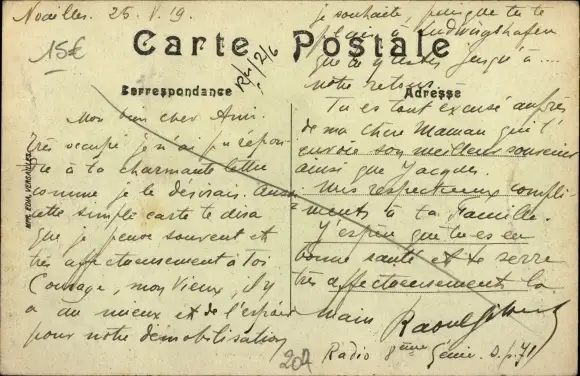 Noailles. 25. V. 19.
15€
Carte Postale
Correspondance
R/12/6
Mon bien cher Ami.
Très occupé, je n'ai pu répon-
dre à ta charmante lettre
comme je le désirais. Aussi
cette simple carte te dira
que je pense souvent et
très affectueusement à toi
Courage, mon vieux, il y
a du mieux et de l'espoir
pour notre démobilisation
IMP. EDIA, VERSAILLES
je souhaite, puisque tu te
plais à Ludwigshafen
que tu y restes jusqu'à ....
notre retour.
Adresse
Tu es tout excusé auprès
de ma chère Maman qui t'
envoie son meilleur souvenir
ainsi que Jacques.
Mes respectueux compli-
ments à ta famille.
J'espère que tu es en
bonne santé et te serre
très affectueusement la
main. Raoul
Radio 8ème Génie. S.p. 71
204